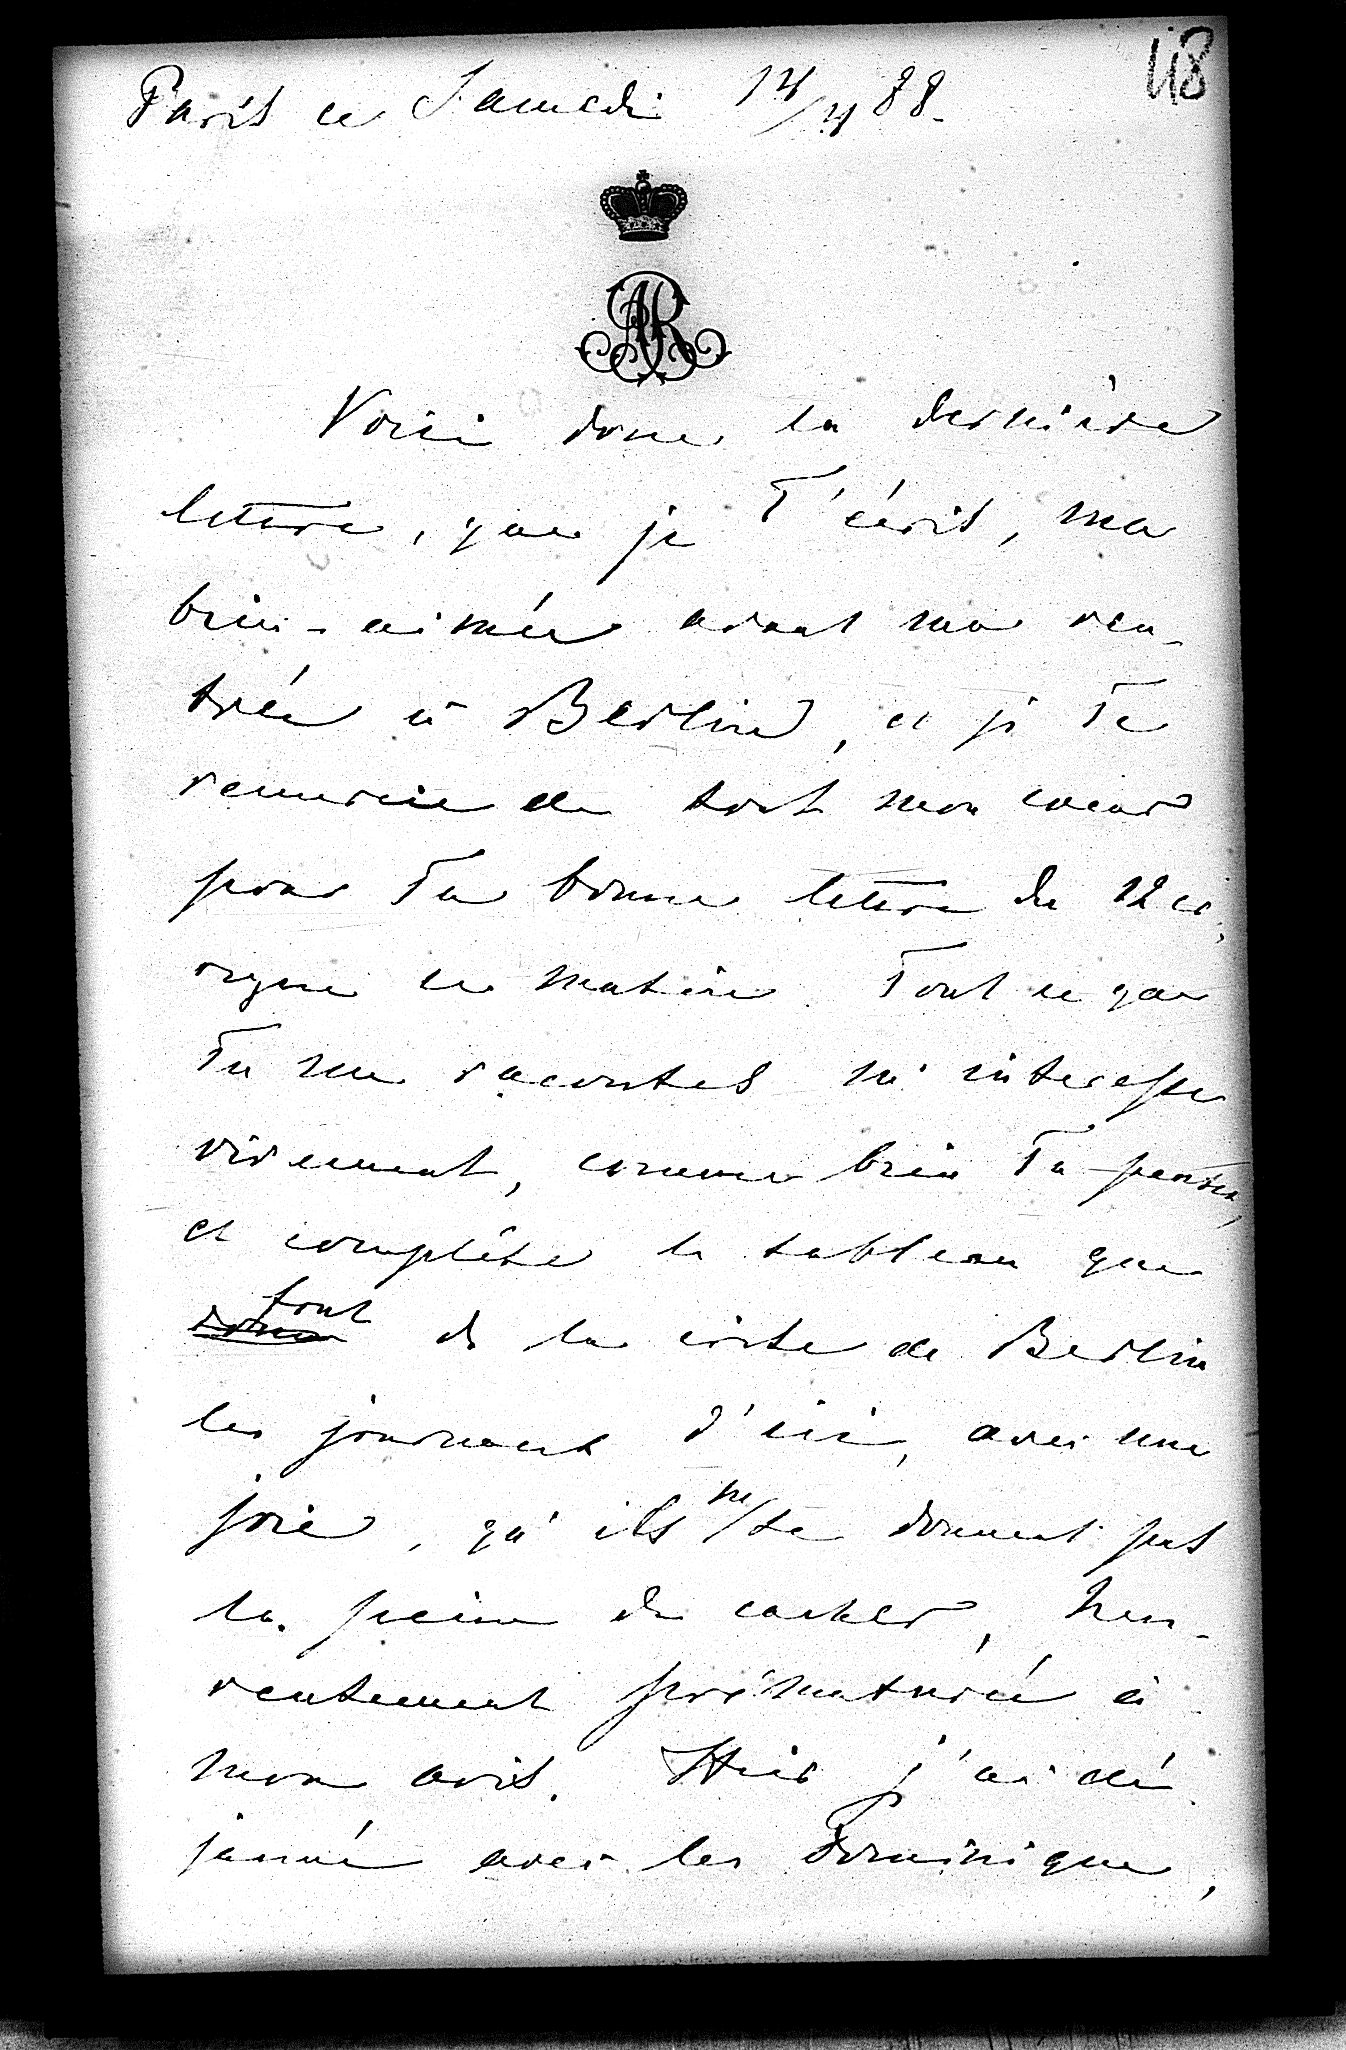 48
Paris ce Samedi 14/4 88.
AR
Voici donc la dernière
lettre, que je T'écris, ma
bien-aimée avant ma ren-
trée à Berlin, et je Te
remercie de tout mon coeur
pour Ta bonne lettre du 12 ct,
reçue ce matin. Tout ce que
Tu me racontes m'interesse
vivement, comme bien Tu penses,
et complète le tableau que
font de la crise de Berlin
les journaux d'ici, avec une
joie, qu'ils ne se donnent pas
la peine de cacher, heu-
reusement prématurée à
mon avis. Hier j'ai dé-
jeuné avec les Dominique,